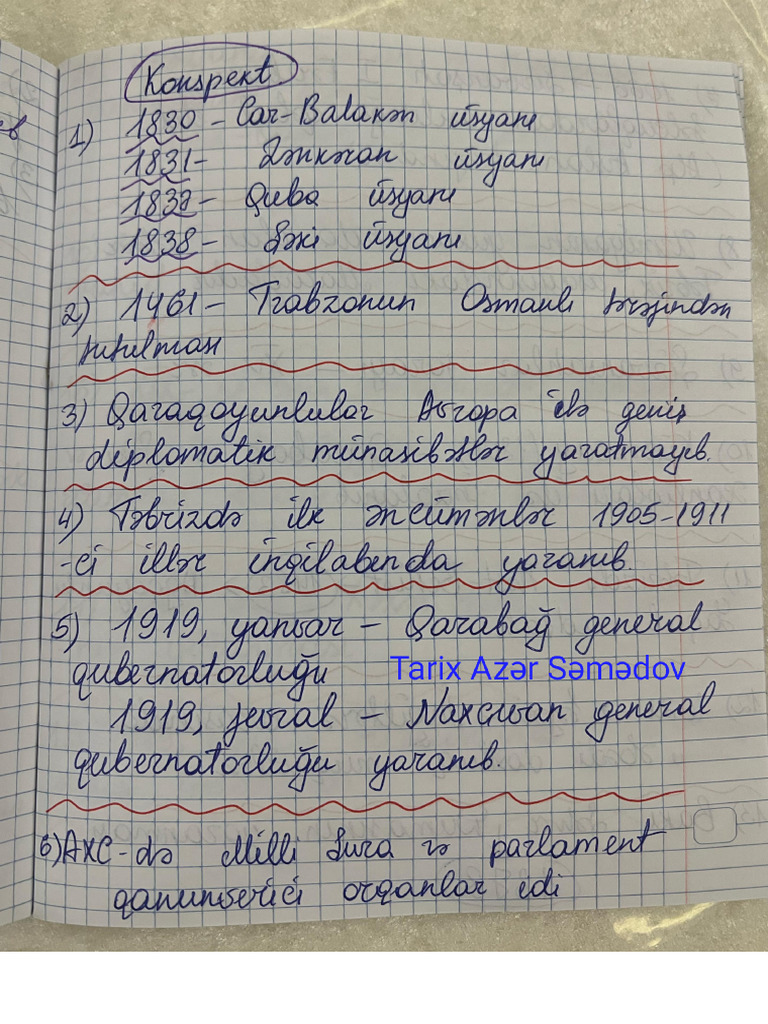 Konspekt
1) 1830 - Car-Balakən üsyanı
1831- Lənkəran üsyanı
1837- Quba üsyanı
1838- Şəki üsyanı
2) 1461 - Trabzonun Osmanlı tərəfindən
tutulması
3) Qaraqoyunlular Avropa ilə geniş
diplomatik münasibətlər yaratmayıb.
4) Təbrizdə ilk əncümənlər 1905-1911
-ci illər inqilabında yaranıb.
5) 1919, yanvar - Qarabağ general
qubernatorluğu
Tarix Azər Səmədov
1919, fevral - Naxçıvan general
qubernatorluğu yaranıb.
6) AXC-də Milli Şura və parlament
qanunverici orqanlar idi